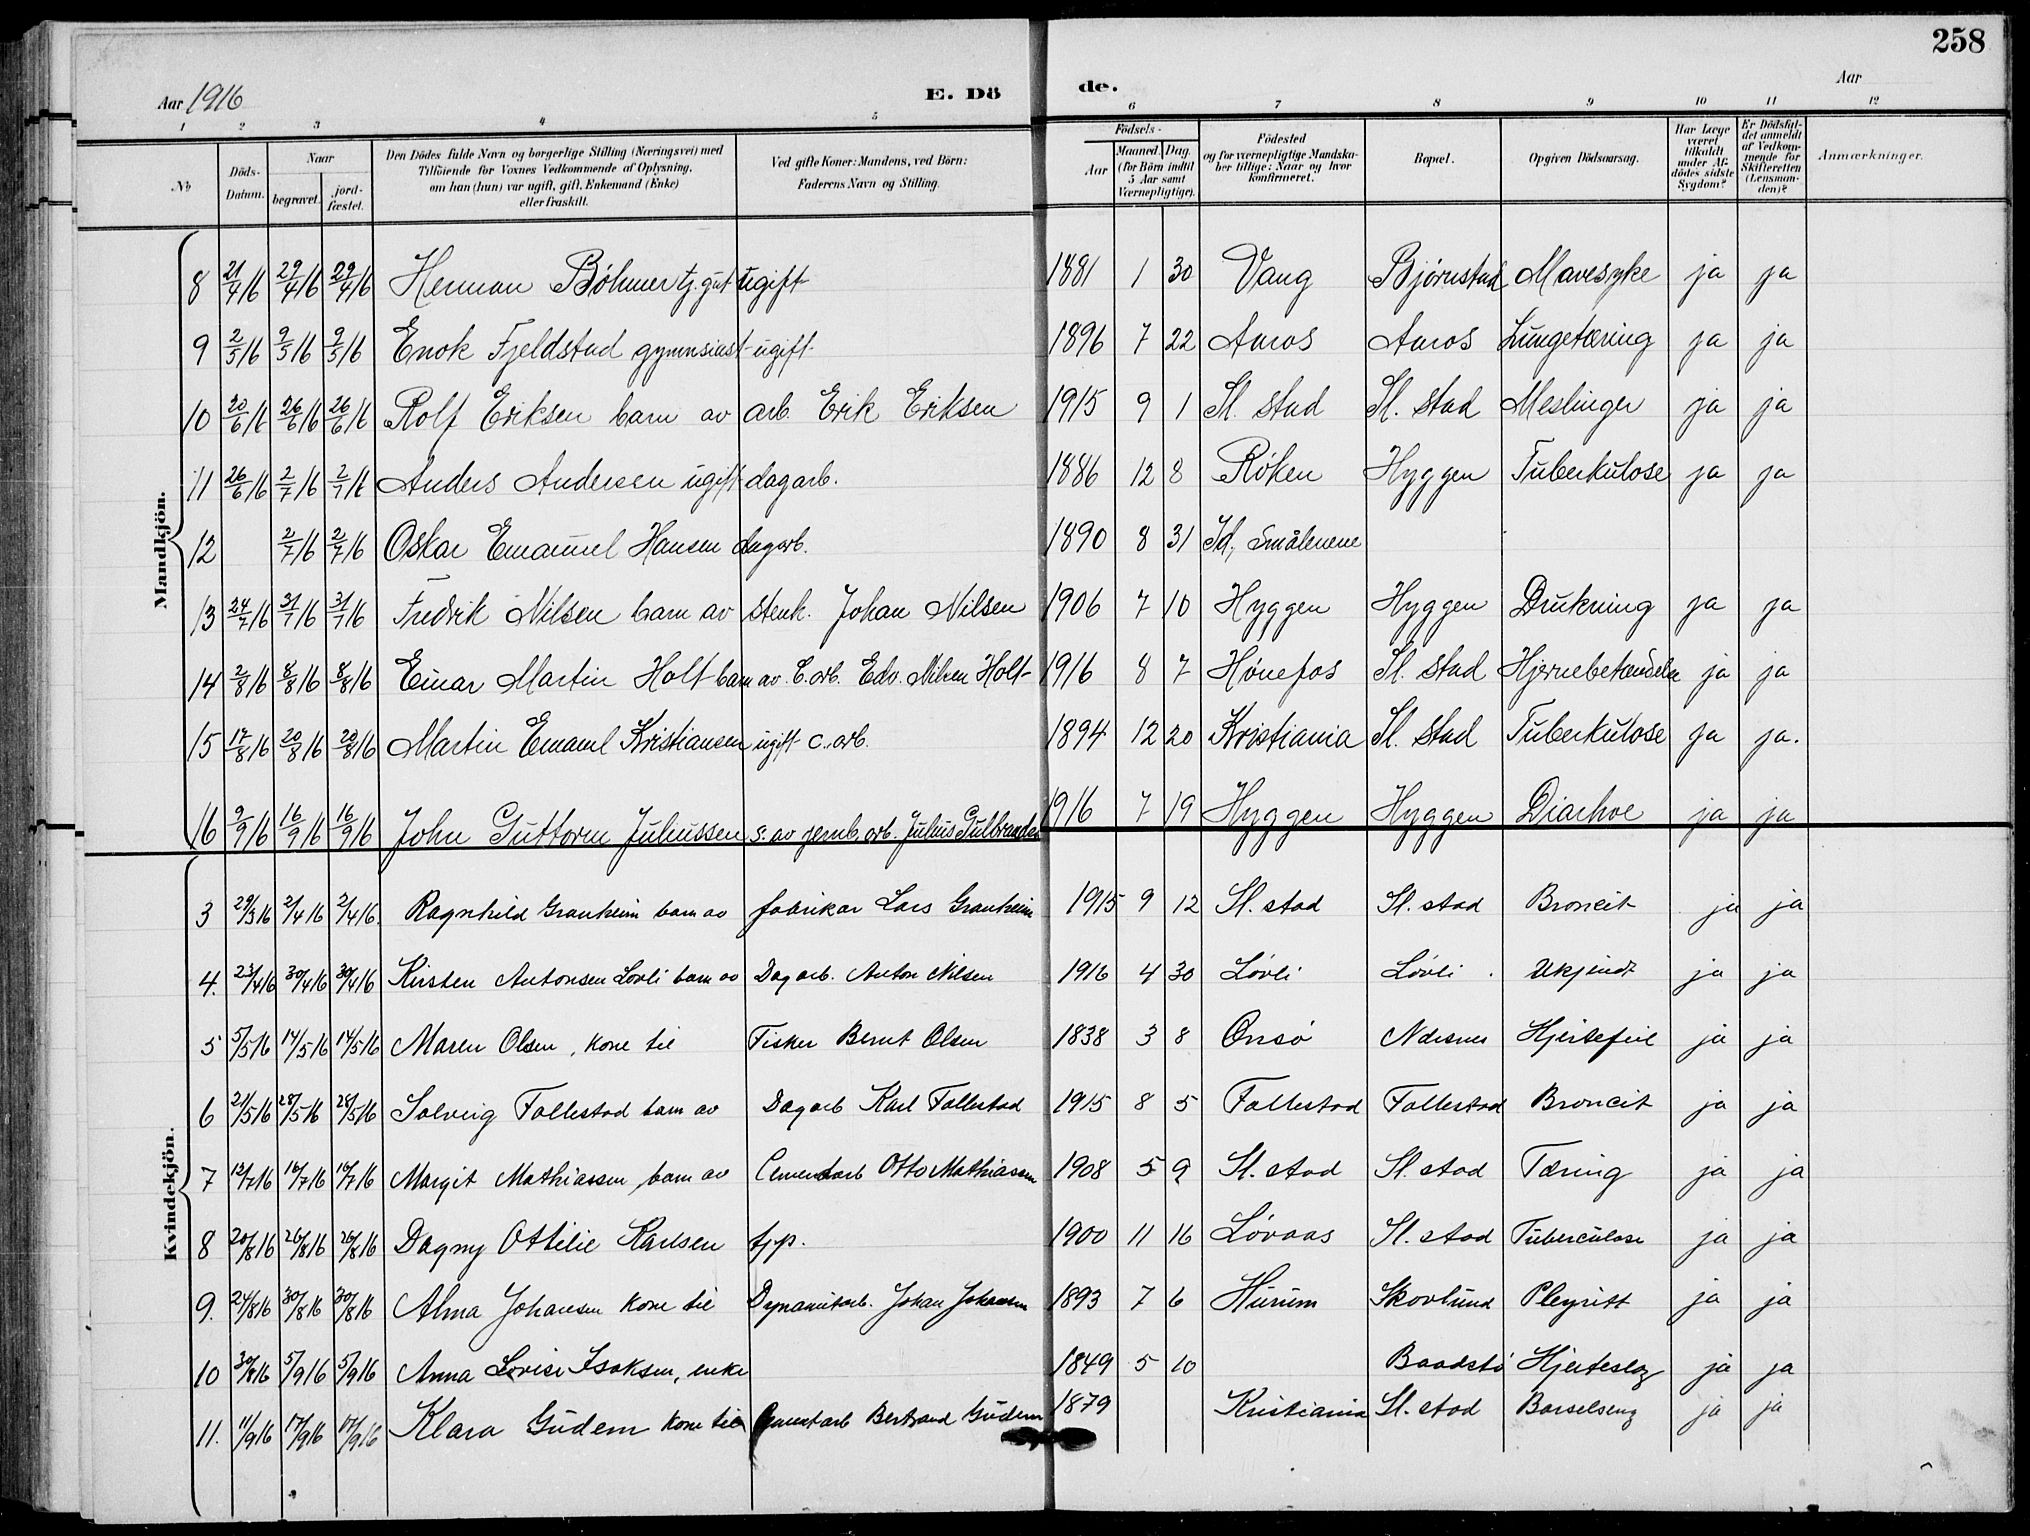 258
Aar 1916
E. Dö de.
Aar
1 2 3 4 5 6 7 8 9 10 11 12
No
Döds-Datum.
Naar
begravet.
jord-fæstet.
Den Dödes fulde Navn og borgerlige Stilling (Næringsvei) med
Tilföiende for Voxnes Vedkommende af Oplysning,
om han (hun) var ugift, gift, Enkemand (Enke)
eller fraskilt.
Ved gifte Koner: Mandens, ved Börn:
Faderens Navn og Stilling.
Födsels-
Aar
Maaned. Dag
(for Börn indtil
5 Aar samt
Værnepligtige).
Födested
og for værnepligtige Mandska-
ber tillige: Naar og hvor
konfirmeret.
Bopæl.
Opgiven Dödsaarsag.
Har Læge
været
tilkaldt
under Af-
dödes sidste
Sygdom?
Er Dödsfal-
det anmeldt
af Vedkom-
mende for
Skifteretten
(Lensman-
den)?
Anmærkninger.
Mandkjön.
8 21/4 16 29/4 16 29/4 16 Herman Böhmer tj. gut ugift 1881 1 30 Vang Bjørnstad Mavesyke ja ja
9 2/5 16 9/5 16 9/5 16 Enok Fjeldstad gymnsiast ugift 1896 7 22 Aaros Aaros Lungetæring ja ja
10 20/6 16 26/6 16 26/6 16 Rolf Eriksen barn av arb. Erik Eriksen 1915 9 1 Sl. stad Sl. stad Meslinger ja ja
11 26/6 16 2/7 16 2/7 16 Anders Andersen ugift dagarb. 1886 12 8 Røken Hyggen Tuberkulose ja ja
12 2/7 16 2/7 16 Oskar Emanuel Hansen dagarb. 1890 8 31 Id, Smålenene
13 24/7 16 31/7 16 31/7 16 Fredrik Nilsen barn av stenh. Johan Nilsen 1906 7 10 Hyggen Hyggen Drukning ja ja
14 2/8 16 8/8 16 8/8 16 Einar Martin Holt barn av C. arb. Edv. Nilsen Holt 1916 8 7 Hønefos Sl. stad Hjernebetændelse ja ja
15 17/8 16 20/8 16 20/8 16 Martin Emanl Kristiansen ugift c. arb. 1894 12 20 Kristiania Sl. stad Tuberkulose ja ja.
16 9/9 16 16/9 16 16/9 16 John Guttorm Juliussen s. av jernb. arb. Julius Gulbrandsen 1916 7 19 Hyggen Hyggen Diarhoe ja ja
Kvindekjön.
3 29/3 16 2/4 16 2/4 16. Ragnhild Granheim barn av fabrikar Lars Granheim 1915 9 12 Sl. stad Sl. stad Broncit ja ja
4. 23/4 16 30/4 16 30/4 16 Kirsten Antonsen Lovli barn av Dagarb. Anton Nilsen 1916 4 30 Løvli Løvli Ukjendt ja ja
5 5/5 16 14/5 16 14/5 16 Maren Olsen, kone til Fisker Bernt Olsen 1838 3 8 Onsø Nærsnes Hjertefeil ja ja
6 21/5 16 28/5 16 28/5 16 Solveig Follestad barn av Dagarb Karl Follestad 1915 8 5 Follestad Follestad Broncit ja ja
7 12/7 16 16/7 16 16/7 16 Margit Mathiassen barn av Cementarb Otto Mathiassen 1908 5 9 Sl. stad Sl. stad Tæring ja ja
8 20/8 16 26/8 16 26/8 16 Dagny Ottilie Karlsen tjp. 1900 11 16 Løvaas Sl. stad Tuberculose ja ja
9. 24/8 16 30/8 16 30/8 16 Alma Johansen kone til Dynamitarb. Johan Johansen 1893 7 6 Hurum Skovlund Pleyritt ja ja
10 30/8 16 5/9 16 5/9 16 Anna Lovise Isaksen, enke 1849 5 10 Baadstø Hjerteslag ja ja
11. 11/9 16 17/9 16 17/9 16 Klara Gudem kone til Cementarb Bertrand Gudem 1879 Kristiania Sl. stad Barselseng ja ja